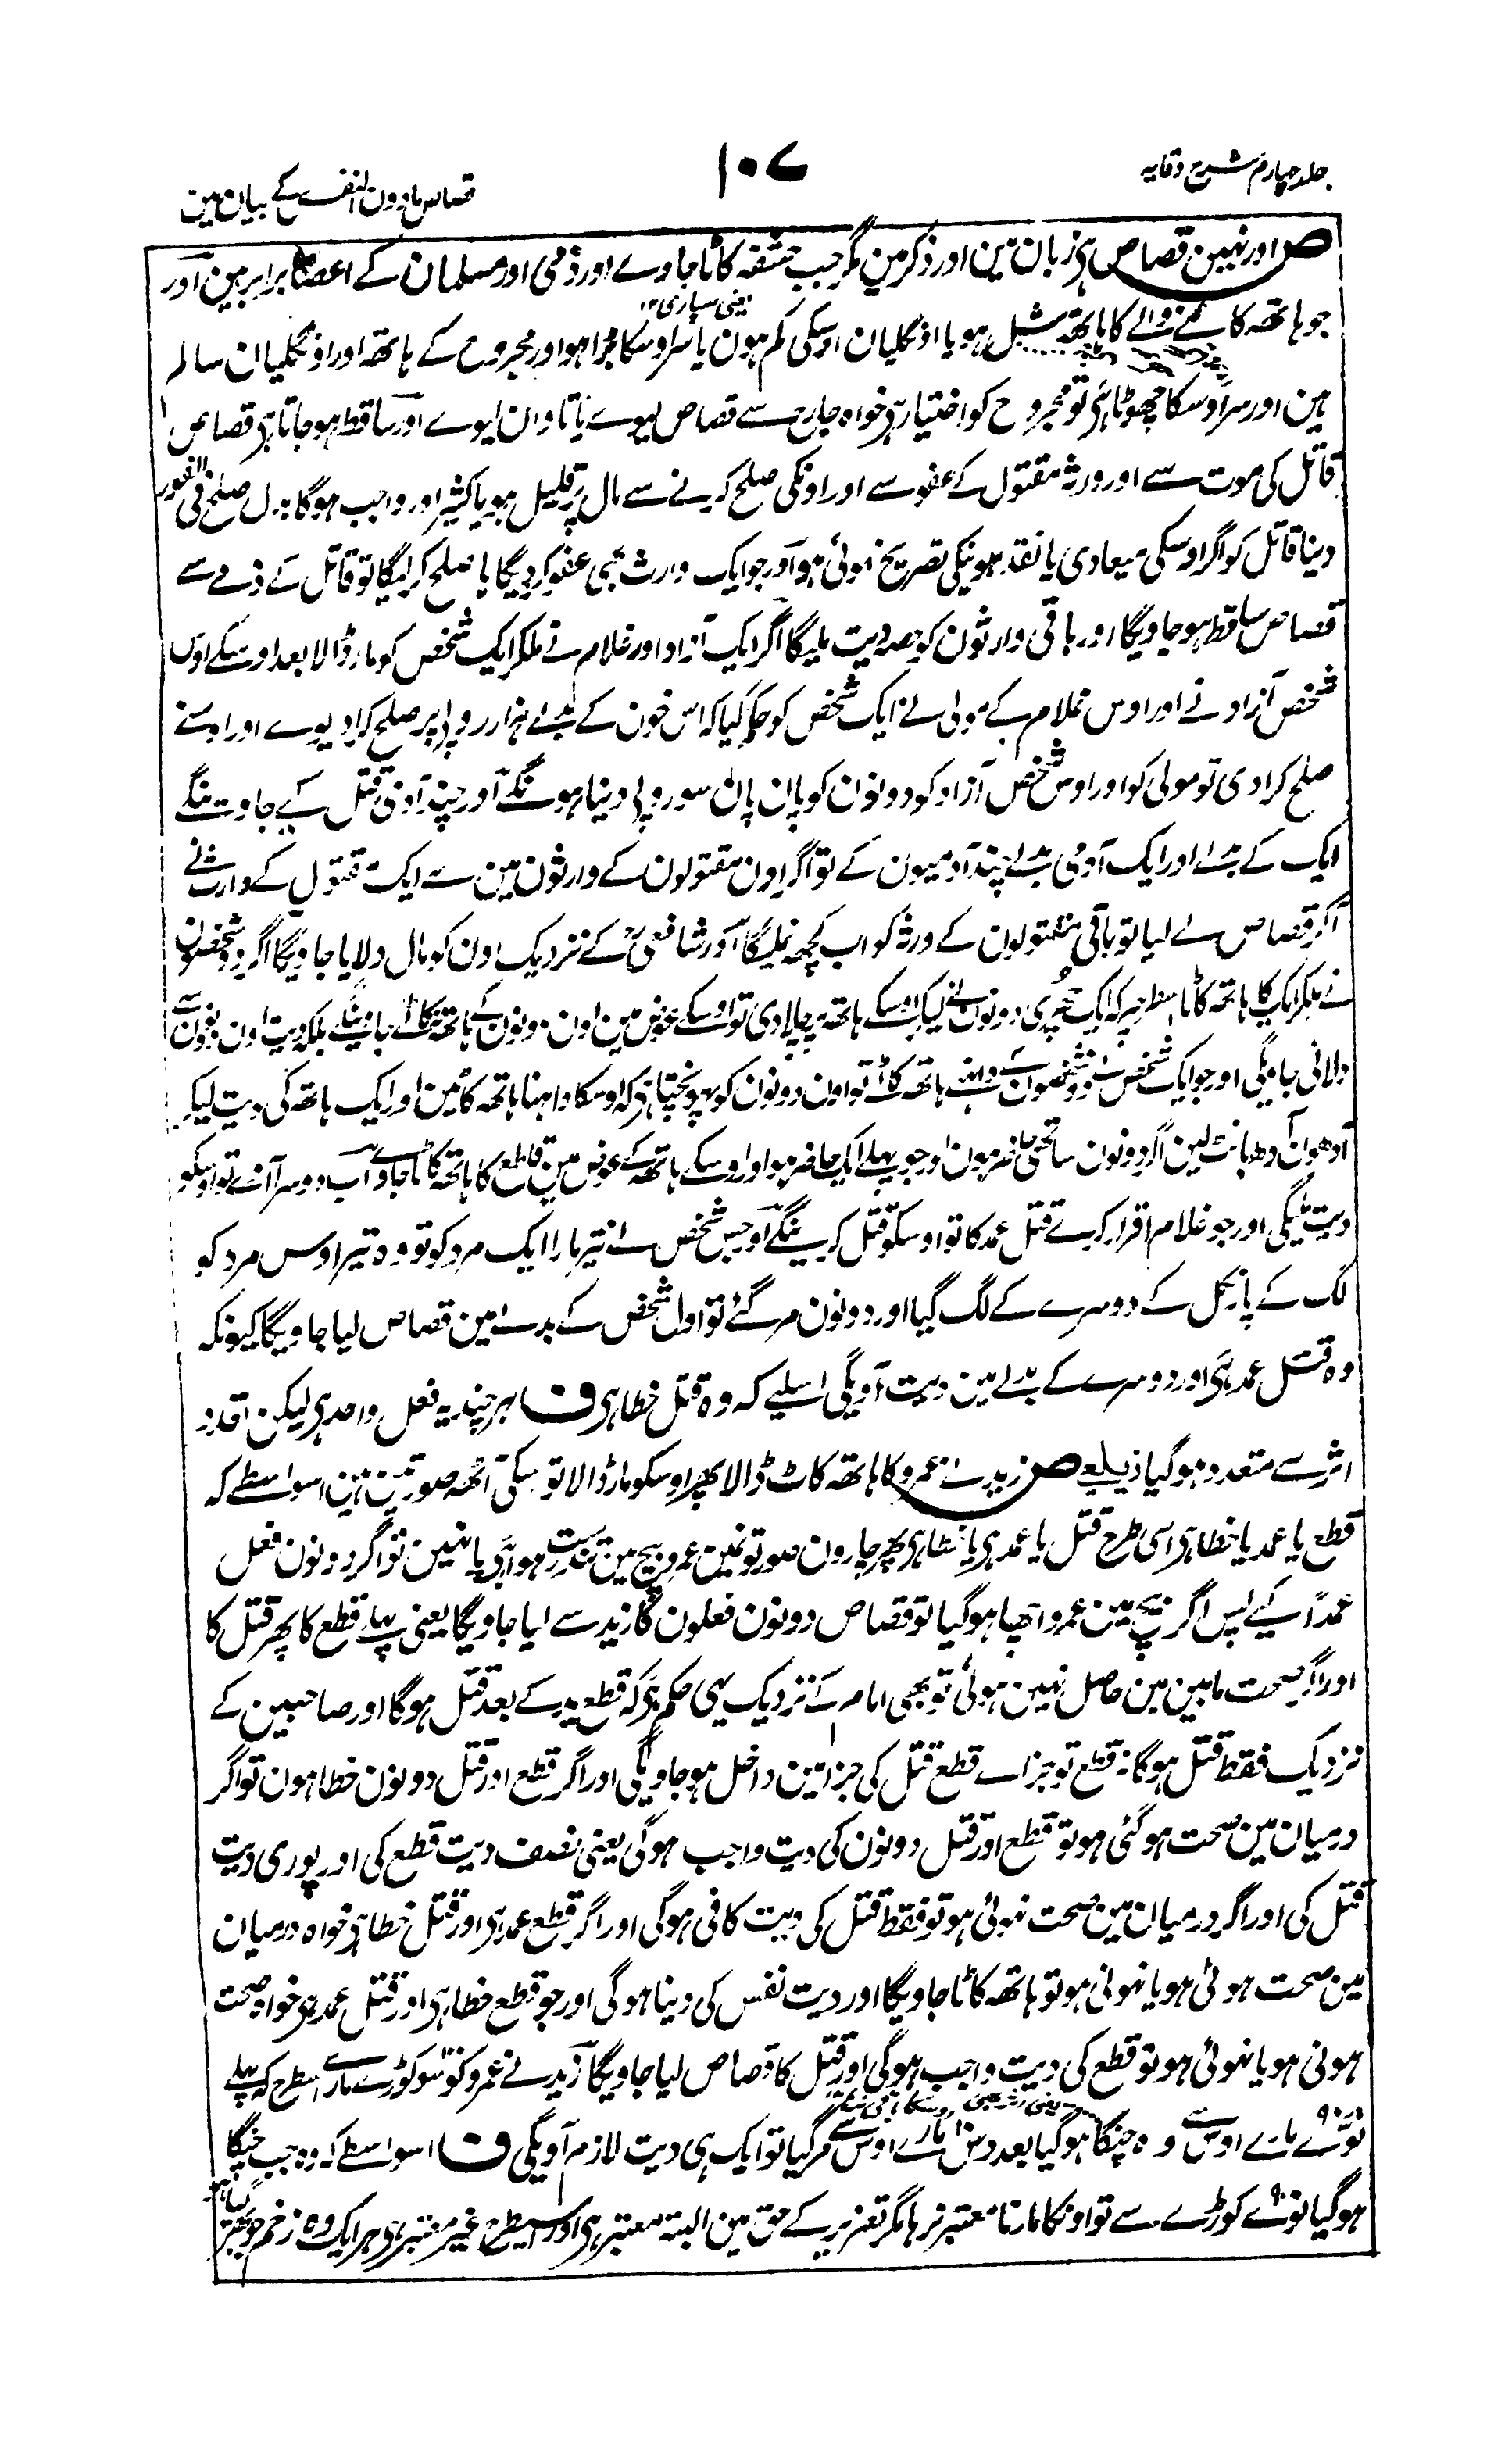 جلد چہارم شرح وقایہ
۱۰۷
قصاص مادون النفس کے بیان مین
ص اور نہین قصاص ہی زبان مین اور ذکر مین مگر جب حشفہ کاٹا جاوے اور ذمی اور مسلمان کے اعضا برابر ہین اور
یعنی سپاری ۱۲
جو ہاتھہ کاٹنے والے کا ہاتھہ شل ہو یا اونگلیان اوسکی کم ہون یا سر اوسکا بڑا ہو اور مجروح کے ہاتھہ اور اونگلیان سالم
ہین اور سر اوسکا چھوٹا ہی تو مجروح کو اختیار ہی خواہ جارح سے قصاص لیوے یا تاوان لیوے اور ساقط ہو جاتا ہی قصاص
قاتل کی موت سے اور ورثہ مقتول کے عفو سے اور اونکی صلح کرنے سے مال پر قلیل ہو یا کثیر اور واجب ہوگا بدل صلح فی الفور
دینا قاتل کو اگر اوسکی میعادی یا نقد ہونیکی تصریح نہوئی ہو اور جو ایک وارث بھی عفو کر دیگا یا صلح کر لیگا تو قاتل کے ذمے سے
قصاص ساقط ہو جاویگا اور باقی وارثون کو حصہ دیت ملیگا اگر ایک آزاد اور غلام نے ملکر ایک شخص کو مار ڈالا بعد اوسکے اوس
شخص آزاد نے اور اوس غلام کے مولی نے ایک شخص کو حکم کیا کہ اس خون کے بدلے ہزار روپے پر صلح کرا دیوے اور اوسنے
صلح کرا دی تو مولی کو اور اوس شخص آزاد کو دونون کو پان پان سو روپے دینا ہونگے اور چند آدمی قتل کیے جاوینگے
ایک کے بدلے اور ایک آدمی بدلے چند آدمیون کے تو اگر اون مقتولون کے وارثون مین سے ایک مقتول کے وارث نے
آکر قصاص لے لیا تو باقی مقتولون کے ورثہ کو اب کچھہ نملیگا اور شافعیؒ کے نزدیک اون کو مال دلایا جاویگا اگر دو شخصون
نے ملکر ایک کا ہاتھہ کاٹا اسطرح پر کہ ایک چھری دونون نے لیکر اوسکے ہاتھہ پر چلادی تو اوسکے عوض مین اون دونون کے ہاتھہ نکاٹے جاوینگے بلکہ دیت اون دونون سے
دلائی جاویگی اور جو ایک شخص نے دو شخصون کے داہنے ہاتھہ کاٹے تو اون دونون کو پہونچتا ہی کہ اوسکا داہنا ہاتھہ کاٹین اور ایک ہاتھہ کی دیت لیکر
آدھون آدھ بانٹ لین اگر دونون ساتھہ حاضر ہون اور جو پہلے ایک حاضر ہوا اور اوسکے ہاتھہ کے عوض مین قاطع کا ہاتھہ کاٹا جاوے اب دوسرا آئے تو اوسکو
دیت ملیگی اور جو غلام اقرار کرے قتل عمد کا تو اوسکو قتل کرینگے اور جس شخص نے تیر مارا ایک مرد کو تو وہ تیر اوس مرد کو
لگ کے پار نکل کے دوسرے کے لگ گیا اور دونون مر گئے تو اول شخص کے بدلے مین قصاص لیا جاویگا کیونکہ
وہ قتل عمد ہی اور دوسرے کے بدلے مین دیت آویگی اسلیے کہ وہ قتل خطا ہی ف ہر چند یہ فعل واحد ہی لیکن
اثر سے متعدد ہو گیا زیلعی ص زید نے عمرو کا ہاتھہ کاٹ ڈالا پھر اوسکو مار ڈالا تو اسکی آٹھہ صورتین ہین اسواسطے کہ
قطع یا عمد یا خطا ہی اسی طرح قتل یا عمد ہی یا خطا ہی پھر چارون صورتونمین عمرو بیچ مین تندرست ہوا ہی یا نہین تو اگر دونون فعل
عمداً کیے پس اگر بیچ مین عمرو اچھا ہو گیا تو قصاص دونون فعلون کا زید سے لیا جاویگا یعنی پہلے قطع کا پھر قتل کا
اور اگر صحت مابین مین حاصل نہین ہوئی تو بھی امام کے نزدیک یہی حکم ہی کہ قطع ید کے بعد قتل ہوگا اور صاحبین کے
نزدیک فقط قتل ہوگا نہ قطع تو جزاے قطع قتل کی جزا مین داخل ہو جاویگی اور اگر قطع اور قتل دونون خطا ہون تو اگر
درمیان مین صحت ہو گئی ہو تو قطع اور قتل دونون کی دیت واجب ہوگی یعنی نصف دیت قطع کی اور پوری دیت
قتل کی اور اگر درمیان مین صحت نہوئی ہو تو فقط قتل کی دیت کافی ہوگی اور اگر قطع عمد ہی اور قتل خطا ہی خواہ درمیان
مین صحت ہوئی ہو یا نہوئی ہو تو ہاتھہ کاٹا جاویگا اور دیت نفس کی دینا ہوگی اور جو قطع خطا ہی اور قتل عمد ہی خواہ صحت
ہوئی ہو یا نہوئی ہو تو قطع کی دیت واجب ہوگی اور قتل کا قصاص لیا جاویگا زید نے عمرو کو سو کوڑے مارے اسطرح کہ پہلے
نوے مارے اوس سے وہ چنگا ہو گیا بعد دس مارے اوس سے مر گیا تو ایک ہی دیت لازم آویگی ف اسواسطے کہ وہ جب چنگا
ہو گیا نوے کوڑے سے تو اونکا مارنا معتبر نرہا مگر تعزیر کے حق مین البتہ معتبر ہی اور اسیطرح غیر معتبر ہی ہر ایک وہ زخم جو بھر گیا ہو